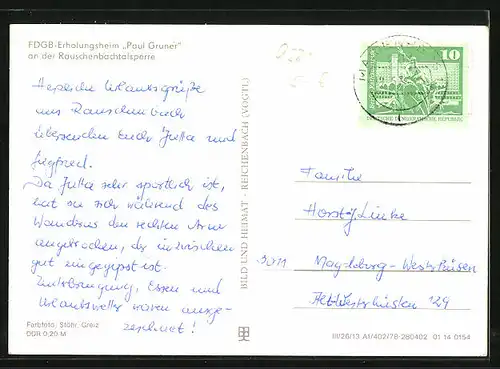 FDGB-Erholungsheim „Paul Gruner"
an der Rauschenbachtalsperre
Herzliche Urlaubsgrüße
aus Rauschenbach
übersenden Euch Jutta und
Siegfried.
Da Jutta sehr sportlich ist,
hat sie sich während des
Wanderns den rechten Arm
angebrochen, der inzwischen
gut eingegipst ist.
Unterbringung, Essen und
Urlaubswetter waren ausge-
zeichnet!
Farbfoto: Stöhr, Greiz
DDR 0,20 M
BILD UND HEIMAT · REICHENBACH (VOGTL)
10
DEUTSCHE DEMOKRATISCHE REPUBLIK
Familie
Horst-J. Linke
3011 Magdeburg-Westerhüsen
Alt Westerhüsen 129
III/26/13 A1/402/78-280402 01 14 0154